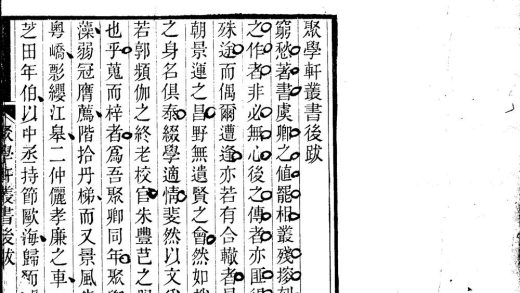 聚學軒叢書後跋
窮愁著書虞卿之値罷相叢殘摉刻
之作者非必無心後之傳者亦匪
殊途而偶爾遭逢亦若有合轍者
朝景運之昌野無遺賢之會然如
之身名俱泰綴學適情斐然以文
若郭頻伽之終老校官朱豐芑之
也乎蒐而梓者爲吾聚卿同年聚
藻弱冠膺薦階拾丹梯而又景風
粤嶠影纓江皋二仲儷孝廉之車
芝田年伯以中丞持節歐海歸而
聚學軒叢書後跋